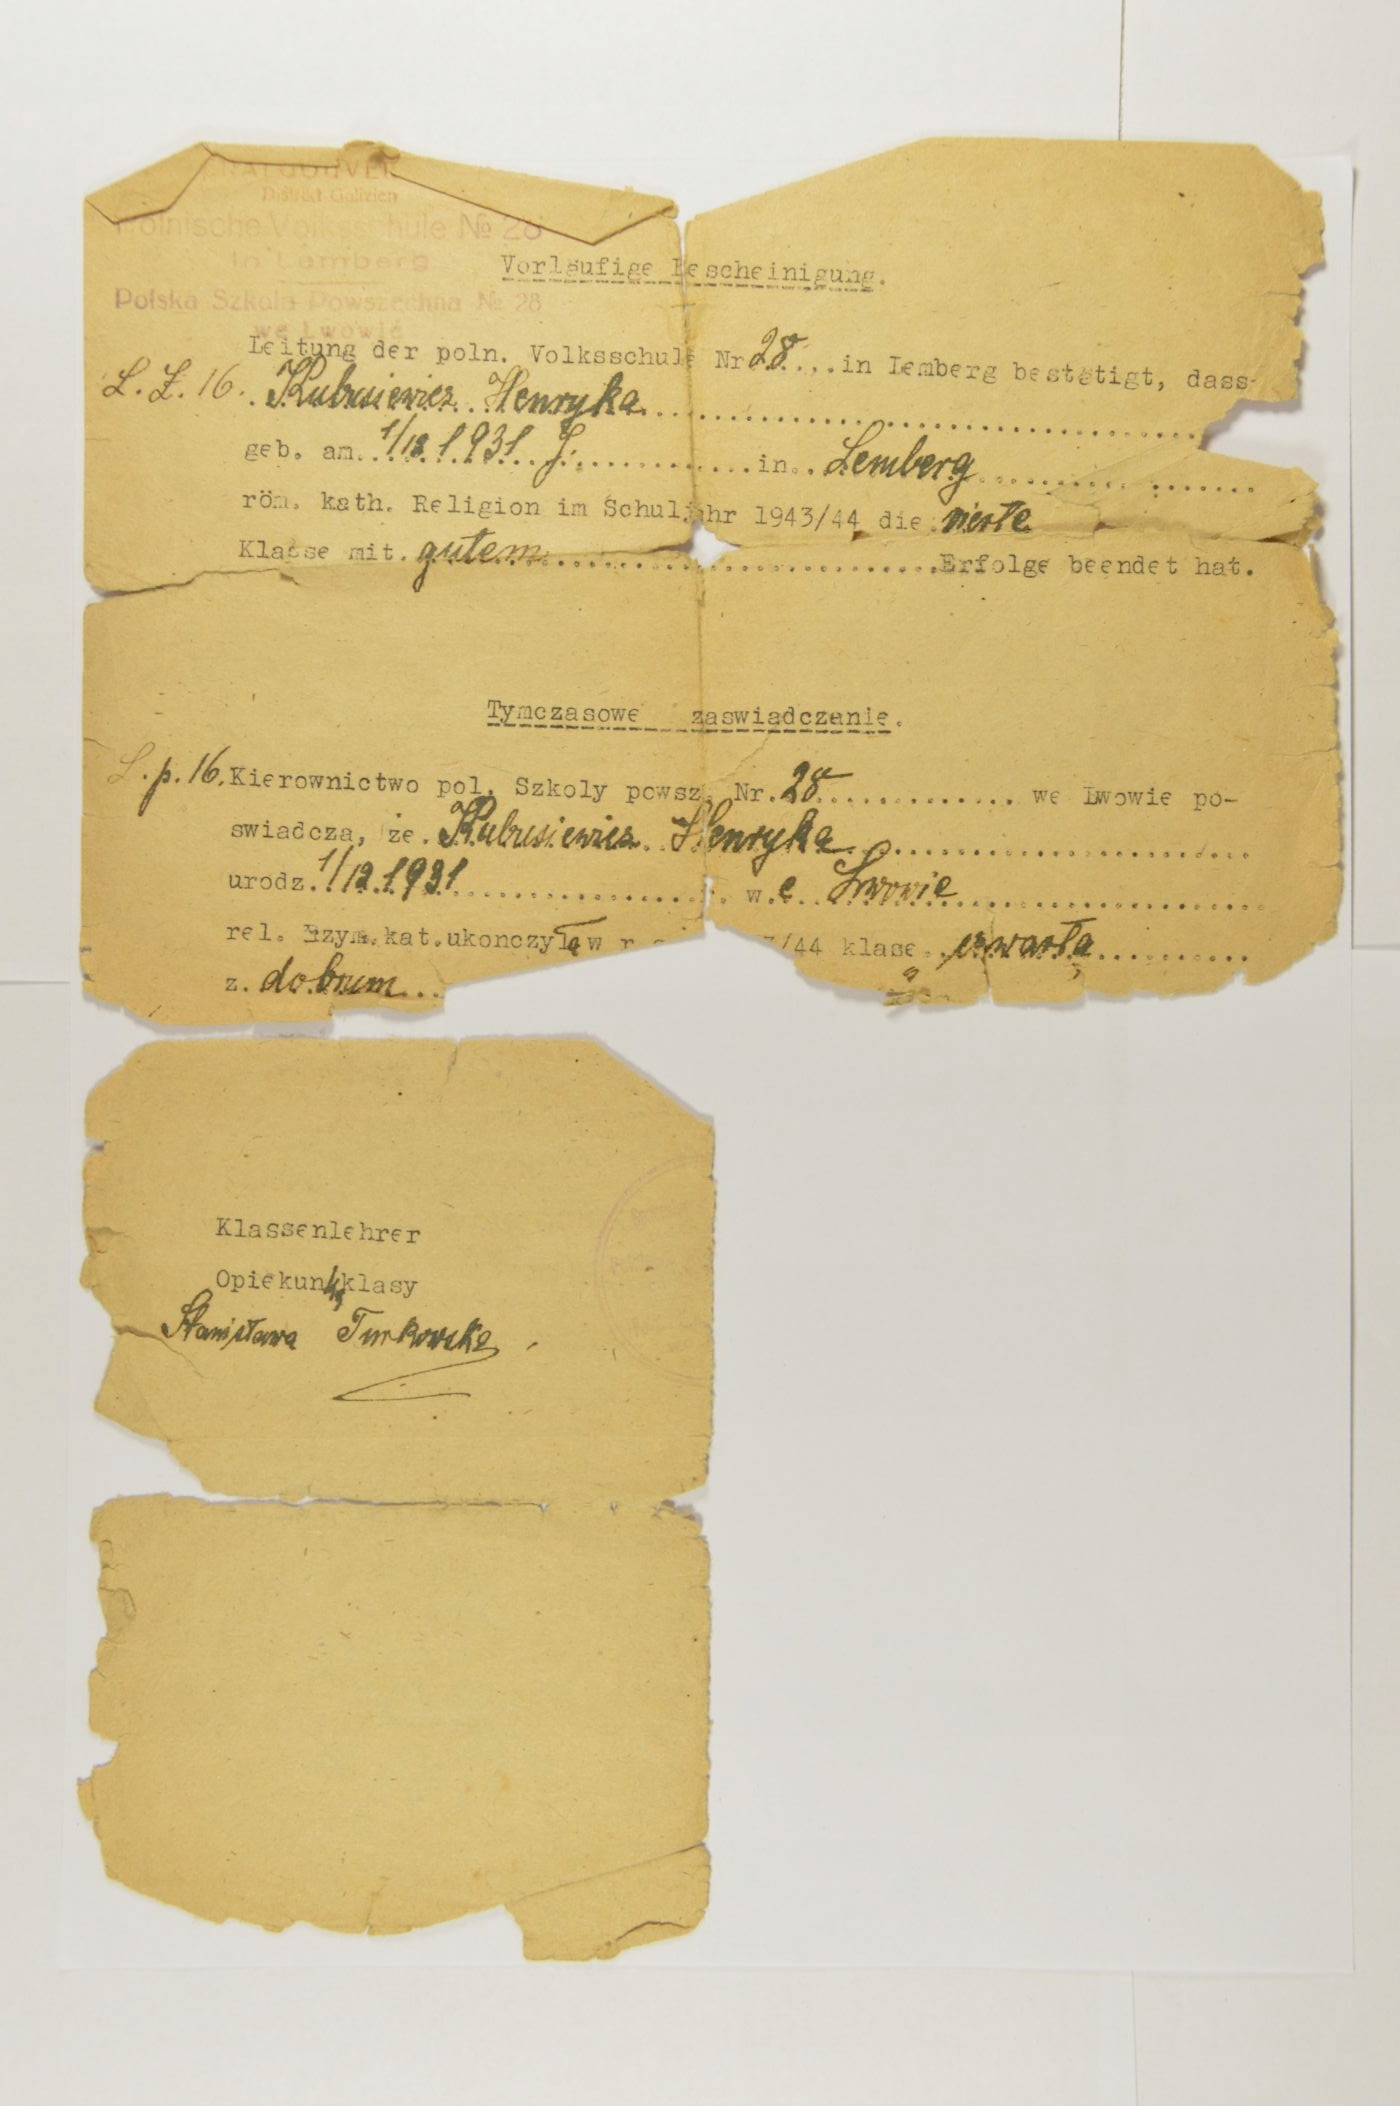 Distrikt Galizien
Polnische Volksschule № 28
in Lemberg
Polska Szkoła Powszechna № 28
we Lwowie
Vorläufige Bescheinigung.
Leitung der poln. Volksschule Nr 28.... in Lemberg bestätigt, dass
L. Z. 16. Kubusiewicz Henryka
geb. am 1/12.1931 J. in Lemberg
röm. kath. Religion im Schuljahr 1943/44 die vierte
Klasse mit gutem Erfolge beendet hat.
Tymczasowe zaswiadczenie.
L.p.16. Kierownictwo pol. Szkoly powsz. Nr. 28 we Lwowie po-
swiadcza, że Kubusiewicz Henryka
urodz. 1/12.1931 w.e Lwowie
rel. Rzym.kat.ukonczyła w r /44 klase czwartą
z. dobrym
Klassenlehrer
Opiekun klasy
Stanisława Turkowska